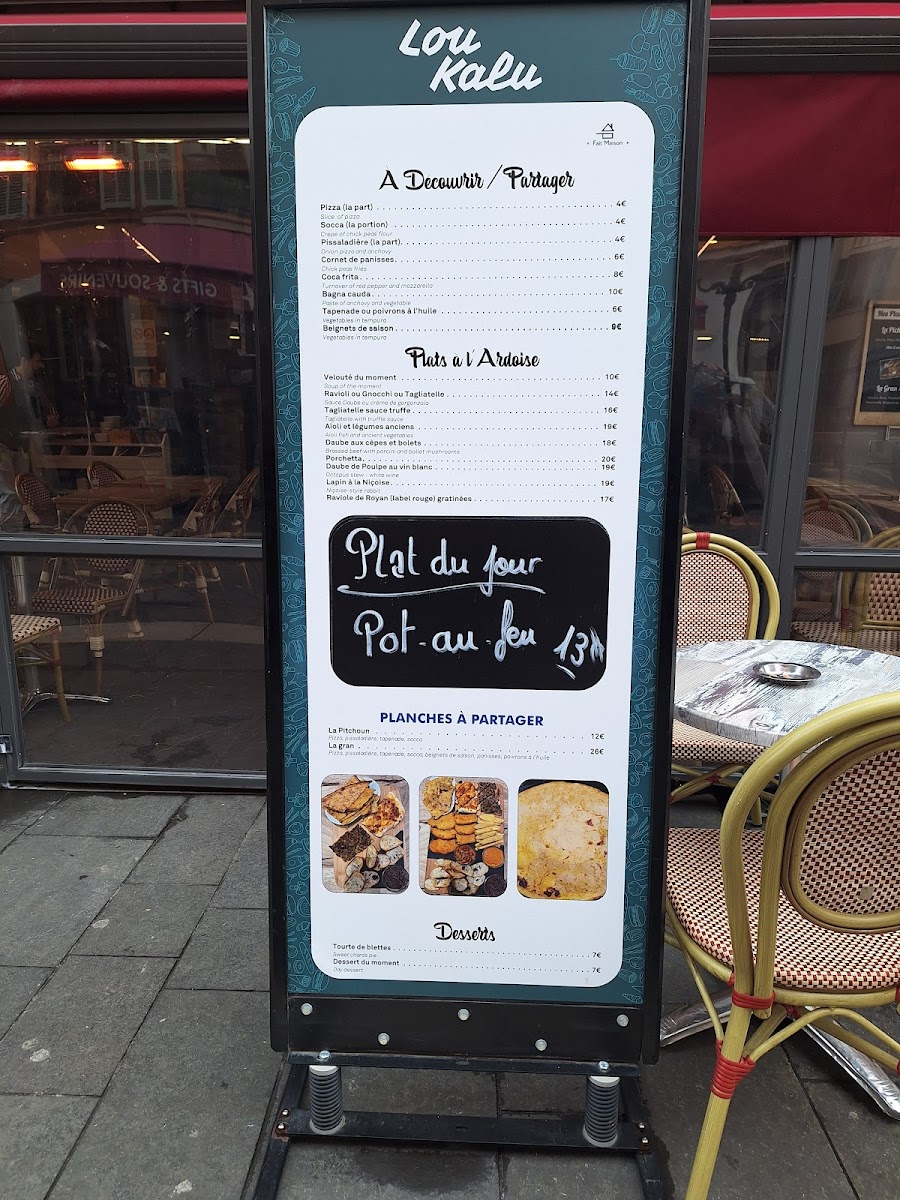 Lou
Kalu
• Fait Maison •
A Decouvrir / Partager
Pizza (la part) 4€
Slice of pizza
Socca (la portion) 4€
Crêpe of chick peas flour
Pissaladière (la part) 4€
Onion pizza and anchovy
Cornet de panisses 6€
Chick peas fries
Coca frita 8€
Turnover of red pepper and mozzarella
Bagna cauda 10€
Paste of anchovy and vegetable
Tapenade ou poivrons à l'huile 6€
Vegetables in tempura
Beignets de saison 9€
Vegetables in tempura
Plats a l'Ardoise
Velouté du moment 10€
Soup of the moment
Ravioli ou Gnocchi ou Tagliatelle 14€
Sauce Daube ou crème de gorgonzola
Tagliatelle sauce truffe 16€
Tagliatelle with truffle sauce
Aioli et légumes anciens 19€
Aioli fish and ancient vegetables
Daube aux cèpes et bolets 18€
Braised beef with porcini and bollet mushrooms
Porchetta 20€
Daube de Poulpe au vin blanc 19€
Octopus stew - white wine
Lapin à la Niçoise 19€
Niçoise-style rabbit
Raviole de Royan (label rouge) gratinées 17€
Plat du jour
Pot-au-feu 13
PLANCHES À PARTAGER
La Pitchoun 12€
Pizza, pissaladière, tapenade, socca
La gran 26€
Pizza, pissaladière, tapenade, socca, beignets de saison, panisses, poivrons à l'huile
Desserts
Tourte de blettes 7€
Sweet chards pie
Dessert du moment 7€
Day dessert
GIFTS & SOUVENIRS